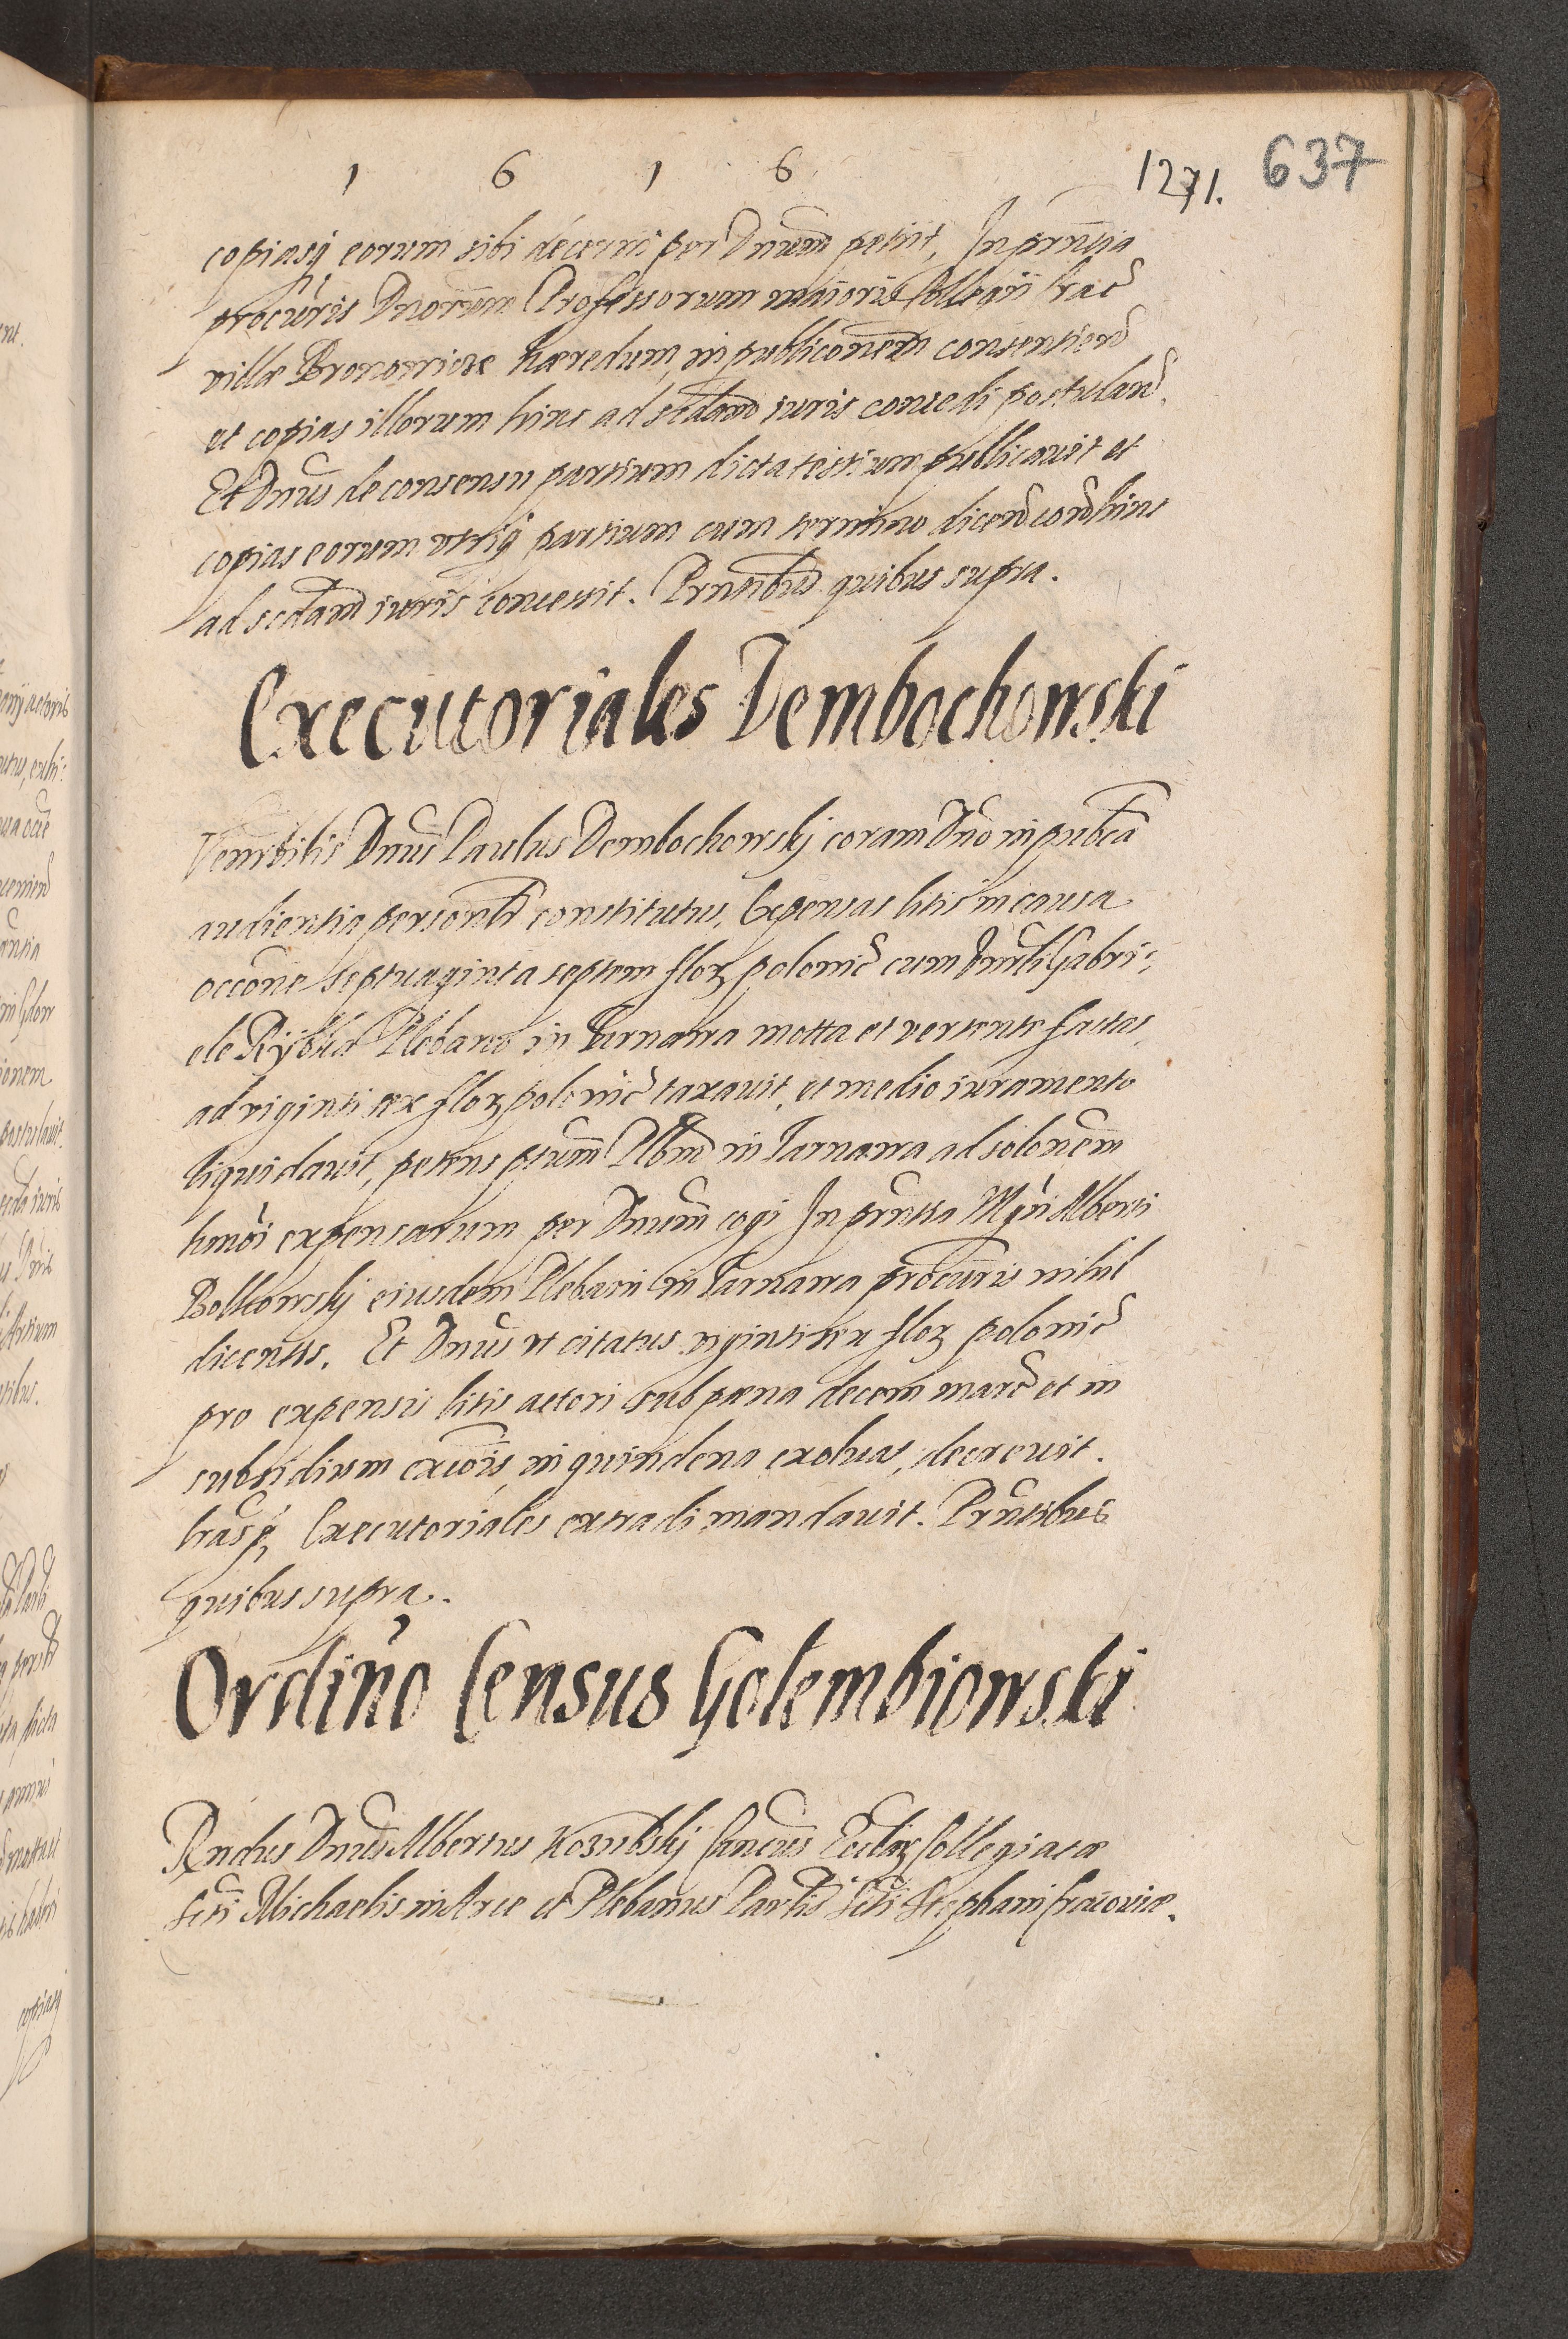 1 6 1 6
1271. 637
copiasq eorum sibi decerni per Dnum petiit, In prntia
procuris Dnorum Professorum maioris Collegii Crac
villæ haeredum, in publiconem consentien
et copias illorum hinc ad scdam iuris concedi postulan.
Et Dnus de consensu partium dicta testium publicavit et
copias eorum utriq partium cum termino dicend cond hinc
ad scdam iuris concessit. Prntibus quibus supra.
Executoriales Dembochowski
Venrbilis Dnus Paulus Dembochowskj coram Dno in pubca
audientia personlr constitutus, Expensas litis in causa
occone septuaginta septem flor polonic cum Gabri:
ele Plebano in Tarnawa motta et vertente factas,
ad viginti sex flor polonic taxavit, et medio iuramento
liquidavit, petens ptum Plbm in Tarnawa ad solonem
hmoi expensarum per Dnum cogi In prntia Mgri Alberti
Bolkowskj eiusdem Plebani in Tarnawa procuris nihil
dicentis. Et Dnus ut citatus viginti sex flor polonic
pro expensis litis actori sub pæna decem marc et in
subsidium excois, in quindena exolvat, decrevit.
Executoriales extradi mandavit. Prntibus
quibus supra.
Ordino Census Golembiowski
Rndus Dnus Albertus Cancus Eccliæ Collegiatæ
Scti Michaelis in Arce et Plebanus Parlis Scti Stephani Cracoviæ.